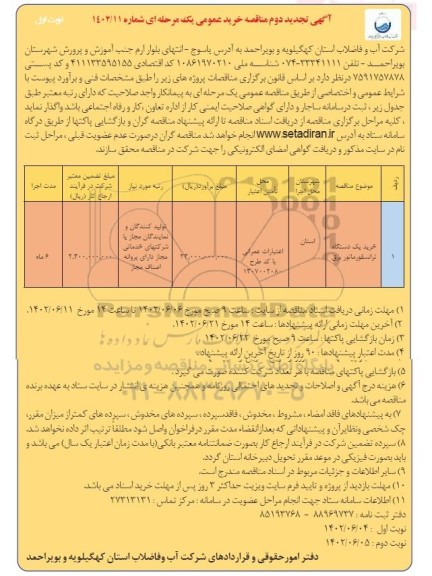 آگهی تجدید دوم مناقصه خرید عمومی یک مرحله ای شماره ۱۴۰۲/۱۱
نوبت اول
شرکت آب و فاضلاب استان کهگیلویه و بویراحمد به آدرس یاسوج -انتهای بلوار ارم جنب آموزش و پرورش شهرستان
بویراحمد - تلفن ۳۳۳۴۱۱۱۱-۰۷۴ شناسه ملی ۱۰۸۶۱۹۷۰۲۱۰ کد اقتصادی ۴۱۱۱۳۳۵۹۵۱۵۵ و کد پستی
۷۵۹۱۷۵۷۸۷۸ درنظر دارد بر اساس قانون برگزاری مناقصات پروژه های زیر را طبق مشخصات فنی و برآورد پیوست با
شرایط عمومی و اختصاصی از طریق مناقصه عمومی یک مرحله ای به پیمانکار واجد صلاحیت که دارای رتبه معتبر طبق
جدول زیر ، ثبت درسامانه ساجار و دارای گواهی صلاحیت ایمنی کار از اداره تعاون ،کار و رفاه اجتماعی باشد واگذار نماید
، کلیه مراحل برگزاری مناقصه از دریافت اسناد مناقصه تا ارائه پیشنهاد مناقصه گران و بازگشایی پاکتها از طریق درگاه
سامانه ستاد به آدرس www.setadiran.ir انجام خواهد شد.مناقصه گران درصورت عدم عضویت قبلی ، مراحل ثبت
نام در سایت مذکور و دریافت گواهی امضای الکترونیکی را جهت شرکت در مناقصه محقق سازند.
ردیف
موضوع مناقصه
شهرستان محل اجرا
محل تامین اعتبار
مبلغ برآورد(ریال)
رتبه مورد نیاز
مبلغ تضمین معتبر شرکت در فرآیند ارجاع کار (ریال)
مدت اجرا
۱
خرید یک دستگاه ترانسفورماتور برق
استان
اعتبارات عمرانی با کد طرح ۱۳۰۷۰۰۲۰۸
تولید کنندگان و نمایندگان مجاز یا شرکتهای خدماتی مجاز دارای پروانه اصناف مجاز
۶ ماه
۱) مهلت زمانی دریافت اسناد مناقصه از سایت: ساعت ۹ صبح مورخ ۱۴۰۲/۰۶/۰۶ تا ساعت ۱۴ مورخ ۱۴۰۲/۰۶/۱۱.
۲) آخرین مهلت زمانی ارائه پیشنهادها : ساعت ۱۴ مورخ ۱۴۰۲/۰۶/۲۱.
۳) زمان بازگشایی پاکتها: ساعت ۹ صبح مورخ ۱۴۰۲/۰۶/۲۲.
۴) مدت اعتبار پیشنهادها : ۹۰ روز از تاریخ آخرین ارائه پیشنهاد.
۵) بازگشایی پاکتهای مناقصه با هر تعداد شرکت کننده صورت می گیرد.
۶) هزینه درج آگهی و اصلاحات و تجدید های احتمالی روزنامه و همچنین هزینه ی انتشار در سایت ستاد به عهده برنده
مناقصه می باشد.
۷) به پیشنهادهای فاقد امضاء ، مشروط ، مخدوش ، فاقدسپرده ، سپرده های مخدوش ، سپرده های کمتراز میزان مقرر،
چک شخصی ونظایرآن و پیشنهاداتی که بعدازانقضاء مدت مقرر درفراخوان واصل شود مطلقا ترتیب اثر داده نخواهد شد.
۸) سپرده تضمین شرکت در فرآیند ارجاع کار بصورت ضمانتنامه معتبر بانکی(با مدت زمان اعتبار یک سال) می باشد و
باید بصورت فیزیکی در موعد مقرر تحویل دبیرخانه این دفتر گردد.
۹) سایر اطلاعات و جزئیات مربوط در اسناد مناقصه مندرج است.
۱۰) مهلت بازدید از پروژه و تایید فرم سایت ویزیت حداکثر ۳ روز پس از مهلت خرید اسناد می باشد.
۱۱) اطلاعات سامانه ستاد جهت انجام مراحل عضویت در سامانه : مرکز تماس : ۲۷۳۱۳۱۳۱
دفتر ثبت نامه : ۸۸۹۶۹۷۳۷ - ۸۵۱۹۳۷۶۸
نوبت اول : ۱۴۰۲/۰۶/۰۴
نوبت دوم : ۱۴۰۲/۰۶/۰۵
دفتر امورحقوقی و قراردادهای شرکت آب وفاضلاب استان کهگیلویه و بویراحمد